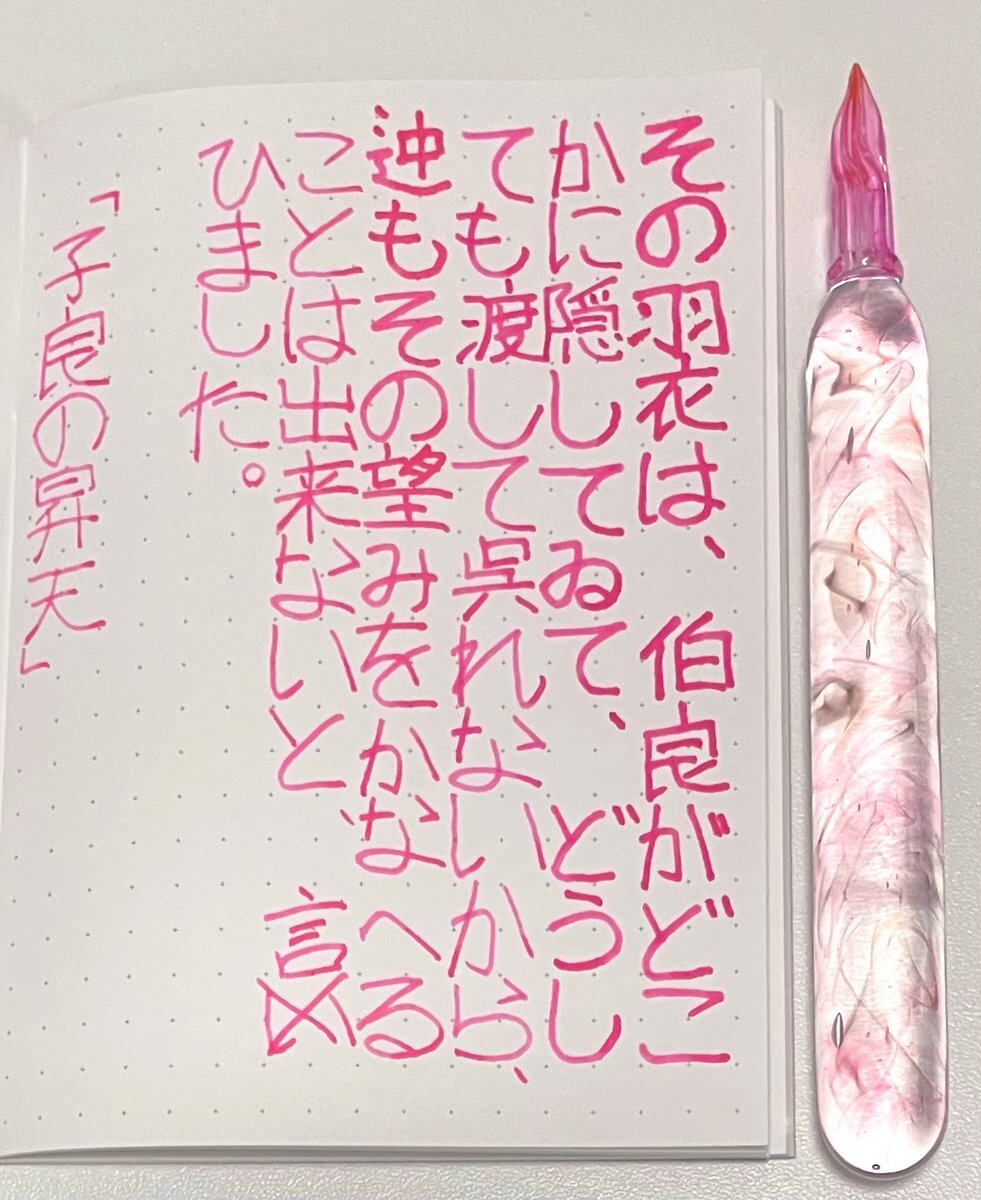 その羽衣は、伯良がどこ
かに隠してゐて、どうし
ても渡して呉れないから、
迚もその望みをかなへる
ことは出来ないと言
ひました。
「子良の昇天」